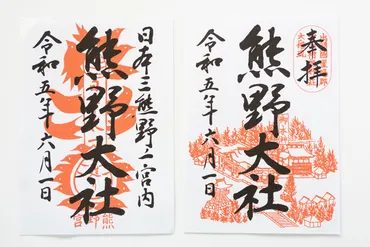 日本三熊野 宮内
熊野大社
令和五年六月一日
奉拝
熊野大社
令和五年六月一日